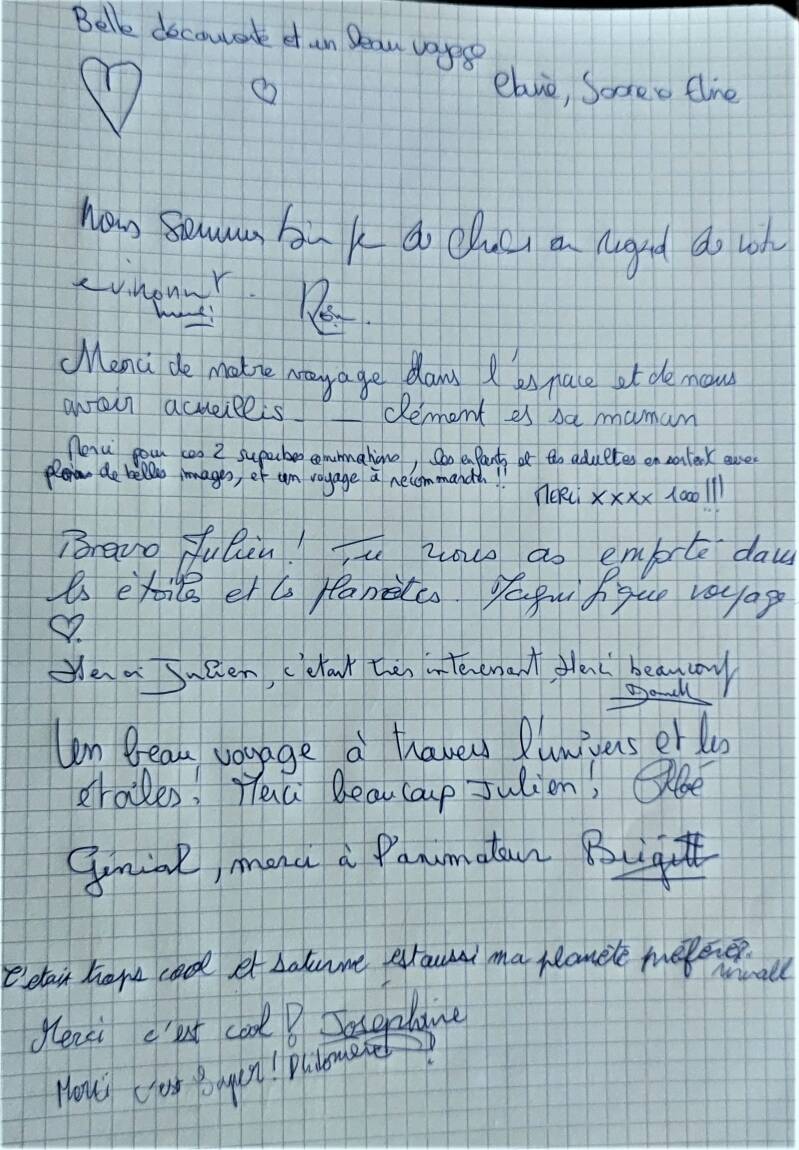 Belle découverte et un beau voyage
Eline
Nous sommes bien peu de choses en regard de votre
merci
Merci de notre voyage dans l'espace et de nous
avoir acueillis__ __ clément es sa maman
Merci pour ces 2 superbes animations, les enfants et les adultes en sortent avec
pleins de belles images, et un voyage à recommander !!
MERCI XXXX 1000 !!!
Bravo Julien ! Tu nous as emporté dans
les étoiles et les planètes. Magnifique voyage
♡.
Merci Julien, c'etait très interessant, Merci beaucoup
Un beau voyage à travers l'univers et les
étoiles ! Merci beaucoup Julien !
Génial, merci à l'animateur Brigitt
C'etait trops cool et saturne est aussi ma planète préférée.
Merci c'est cool ! Joséphine
Merci c'est super ! Philomène !